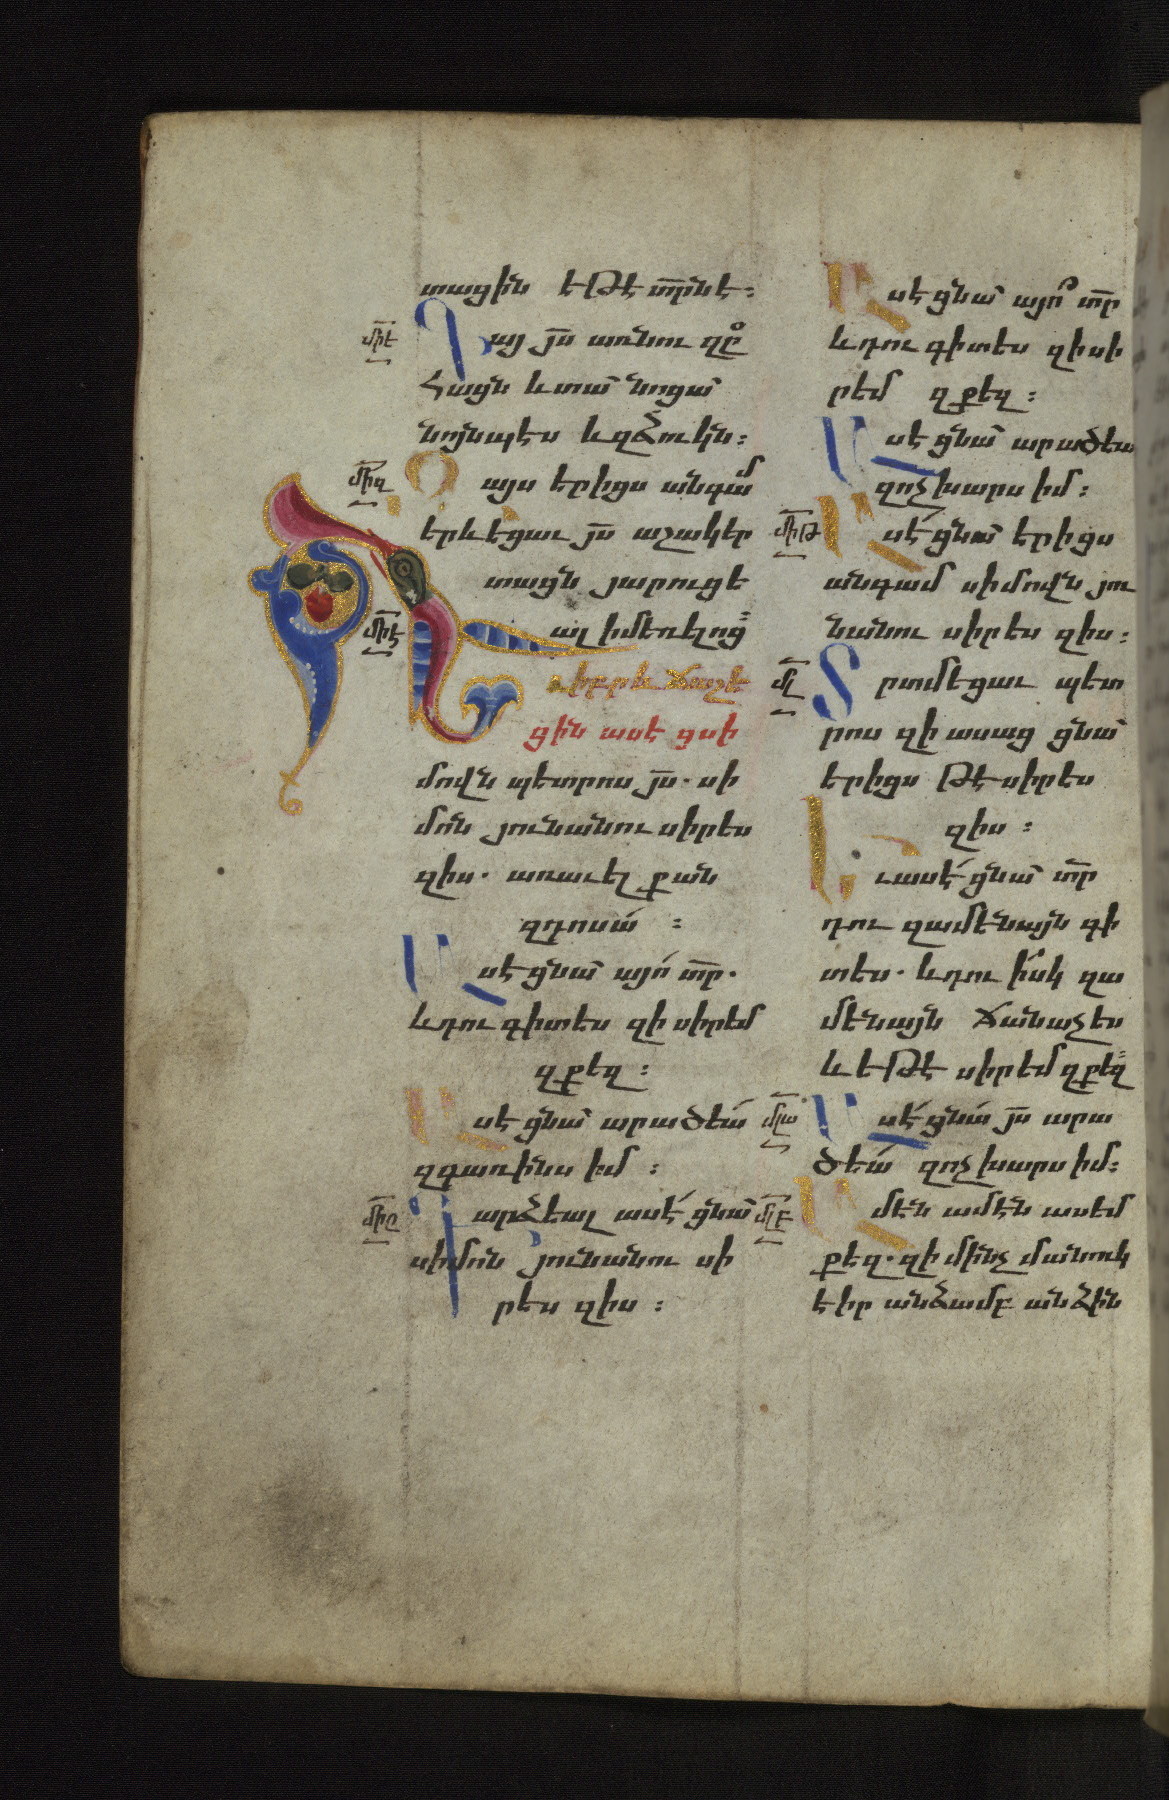 տացին եթէ տրնէ։
միէ
Գայ յս առնու զը
հացն և տա՛ նոցա՛
նոյնպէս և զձուկն։
միզ
Այս երիցս անգամ
երևեցաւ յս աշակեր
տացն յարուցե
միէ
ալ ի մեռելոց։
Եւ իբրև ճաշե
ցին ասէ ցսի
մովն պետրոս յս. սի
մոն յունանու սիրես
զիս. առաւել քան
զդոսա՛ ։
Ասէ ցնա՛ այո՛ տր.
և դու գիտես զի սիրեմ
զքեզ ։
Ասէ ցնա՛ արածեա՛
զգառինս իմ ։
միը
Դարձեալ ասէ՛ ցնա՛
սիմոն յունանու սի
րես զիս ։
Ասէ ցնա՛ այո՛ տր
և դու գիտես զի սի
րեմ զքեզ ։
Ասէ ցնա՛ արածեա
զոչխարս իմ ։
միթ
Ասէ՛ ցնա՛ երիցս
անգամ սիմովն յու
նանու սիրես զիս ։
մլ
Տրտմեցաւ պետ
րոս զի ասաց ցնա՛
երիցս թէ սիրես
զիս ։
Եւ ասէ՛ ցնա՛ տր
դու զամենայն գի
տես. և դու ի՛սկ զա
մենայն ճանաչես
և եթէ սիրեմ զքեզ։
մլա
Ասէ՛ ցնա՛ յս արա
ծեա՛ զոչխարս իմ։
մլբ
Ամէն ամէն ասեմ
քեզ. զի մինչ մանուկ
էիր անձամբ անձին